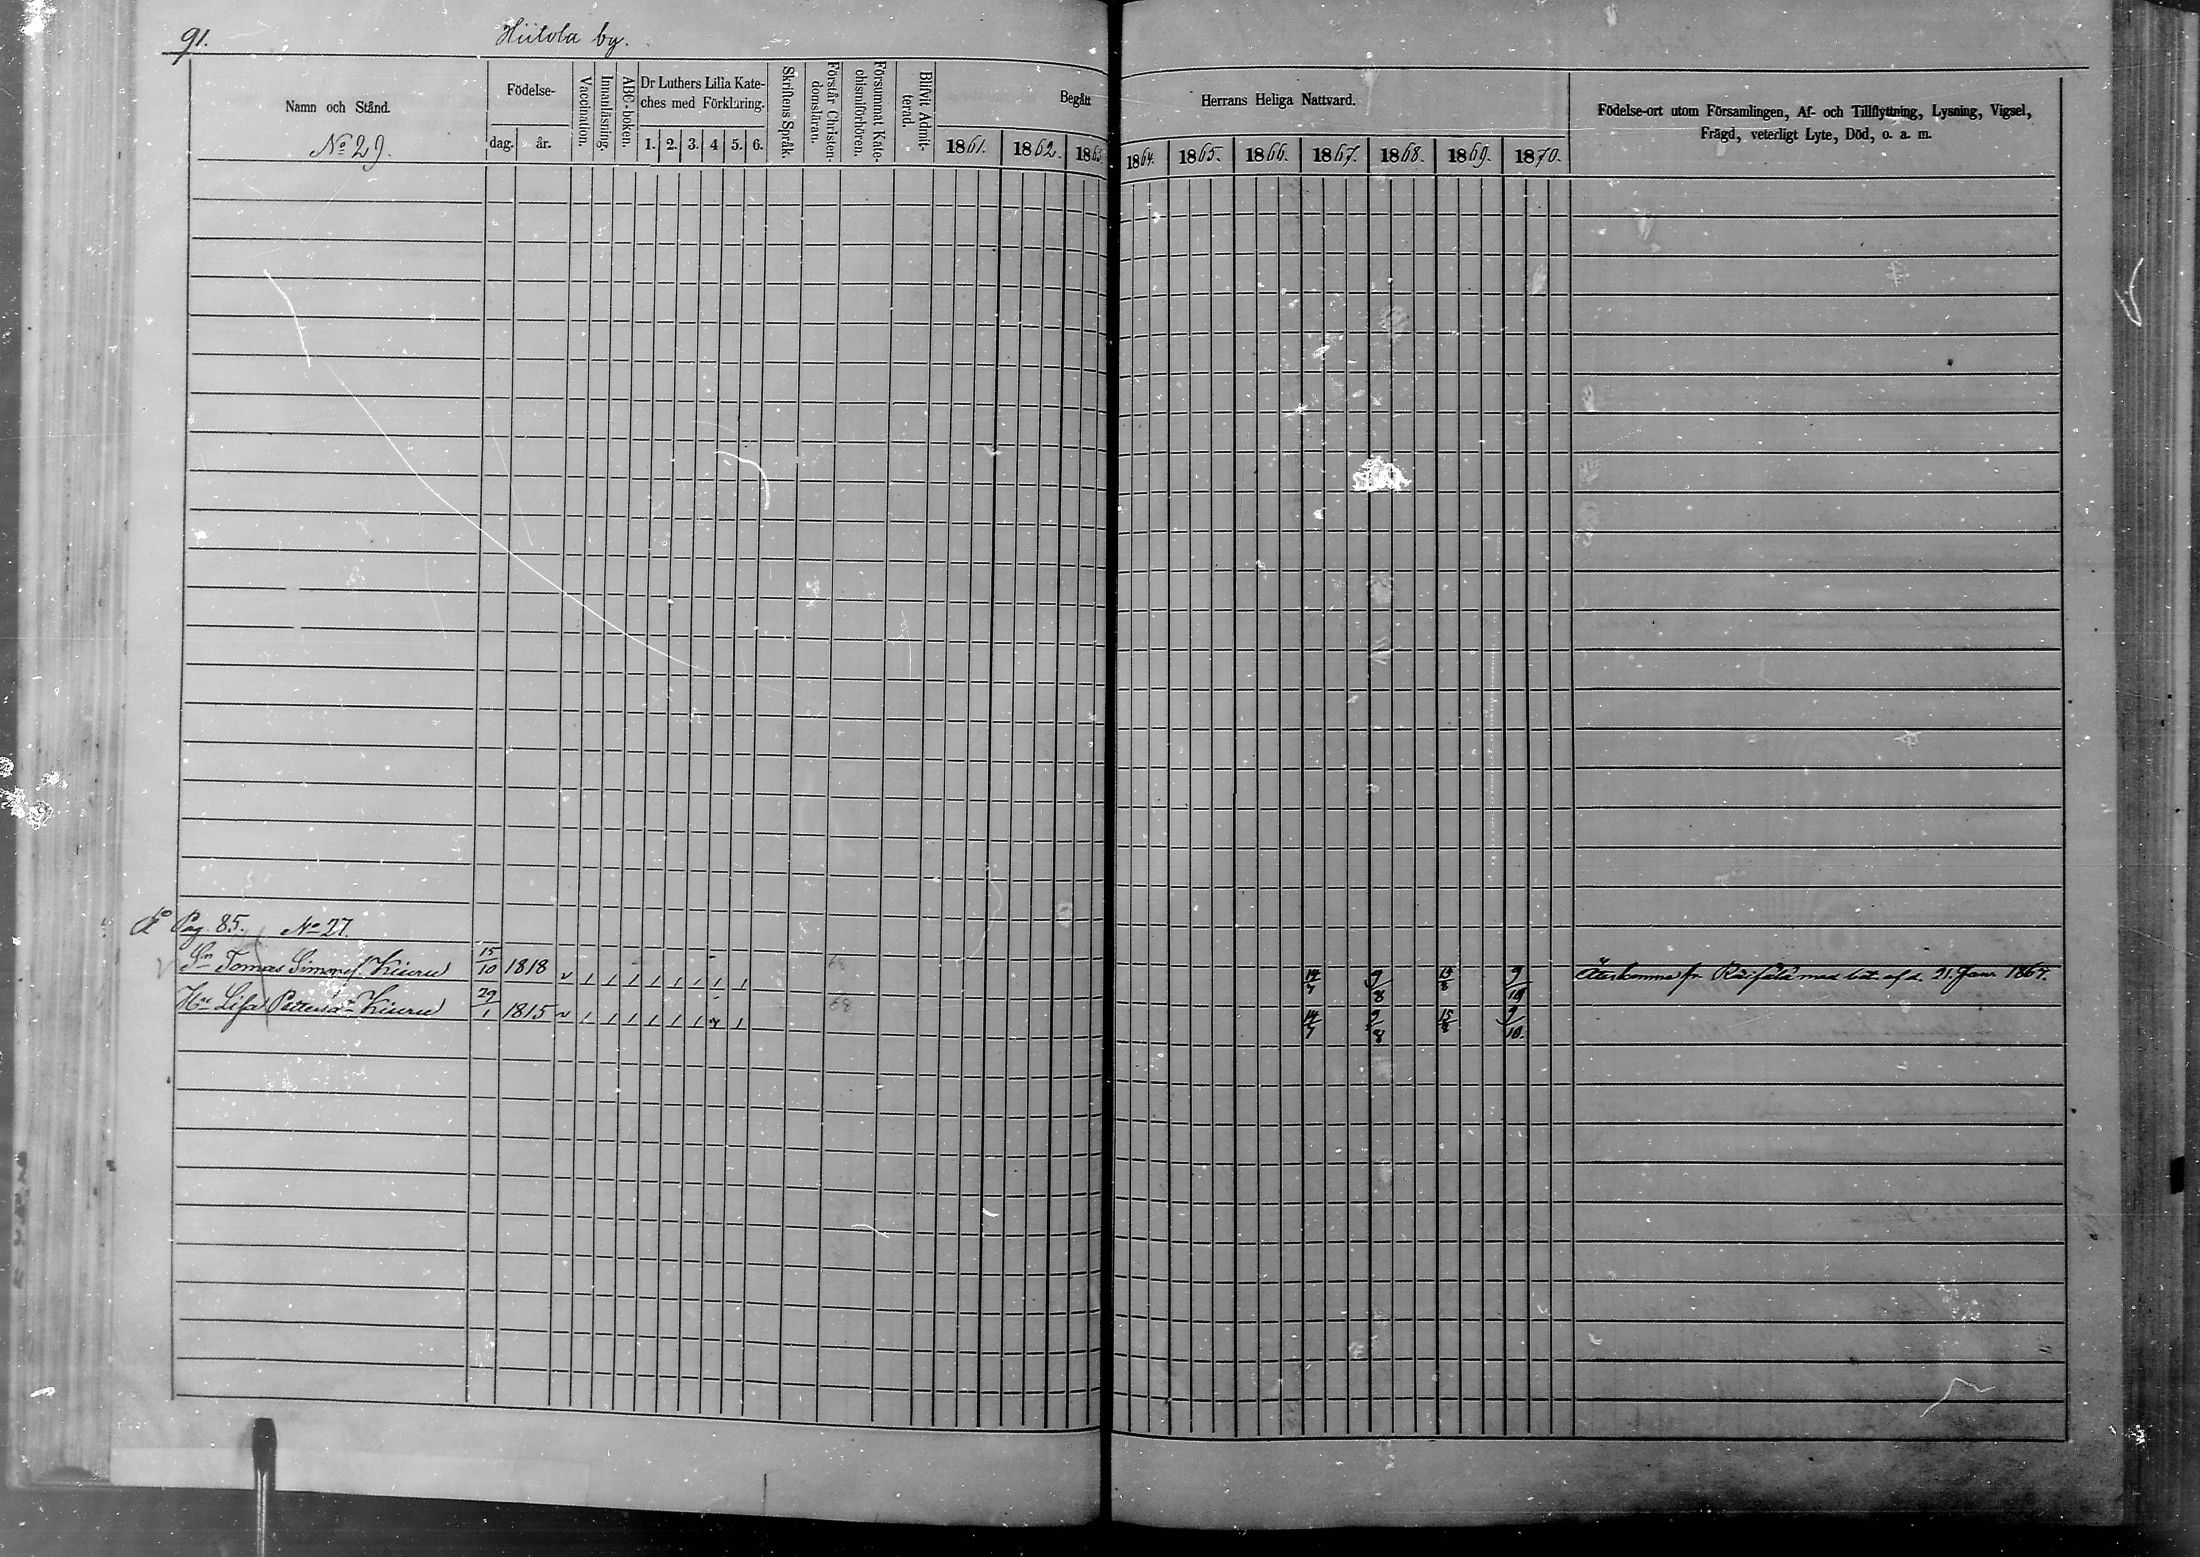 91.
Hiitola by.
Namn och Stånd.
No 29.
Födelse-
dag. år.
Vaccination.
Innanläsning.
ABC-boken.
Dr Luthers Lilla Kate-
ches med Förklaring.
1. 2. 3. 4 5. 6.
Skriftens Språk.
Förstår Christen-
domsläran.
Försummat Kate-
chismiförhören.
Blifvit Admit-
terad.
Begått
1861. 1862. 1863.
Herrans Heliga Nattvard.
1864. 1865. 1866. 1867. 1868. 1869. 1870.
Födelse-ort utom Församlingen, Af- och Tillflyttning, Lysning, Vigsel,
Frägd, veterligt Lyte, Död, o. a. m.
Pag. 85. No 27.
Sn Tomas Simonsf. Kiuru 15/10 1818 v 1 1 1 1 1 1 1 1 68 14/7 9/8 15/8 9/10 Återkomne fr. Räisälä med bet. af d. 21. Janr 1867.
Hu Lisa Pettersdr Kiuru 29/1 1815 v 1 1 1 1 1 1 1 68 14/7 9/8 15/8 9/10.